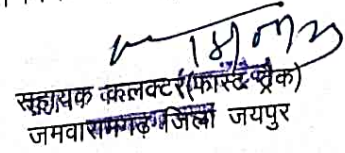 सहायक कलक्टर (फास्ट ट्रैक)
जमवारामगढ़ जिला जयपुर